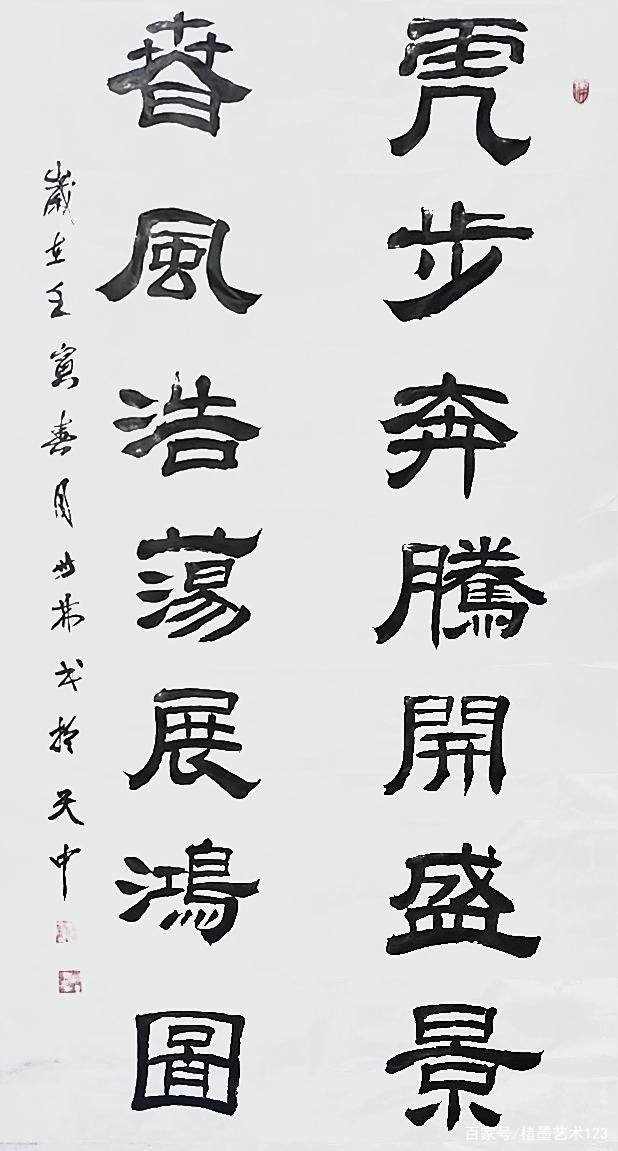 虎步奔騰開盛景
春風浩蕩展鴻圖
歲在壬寅春月世恭书於天中
百家号/楮墨艺术123